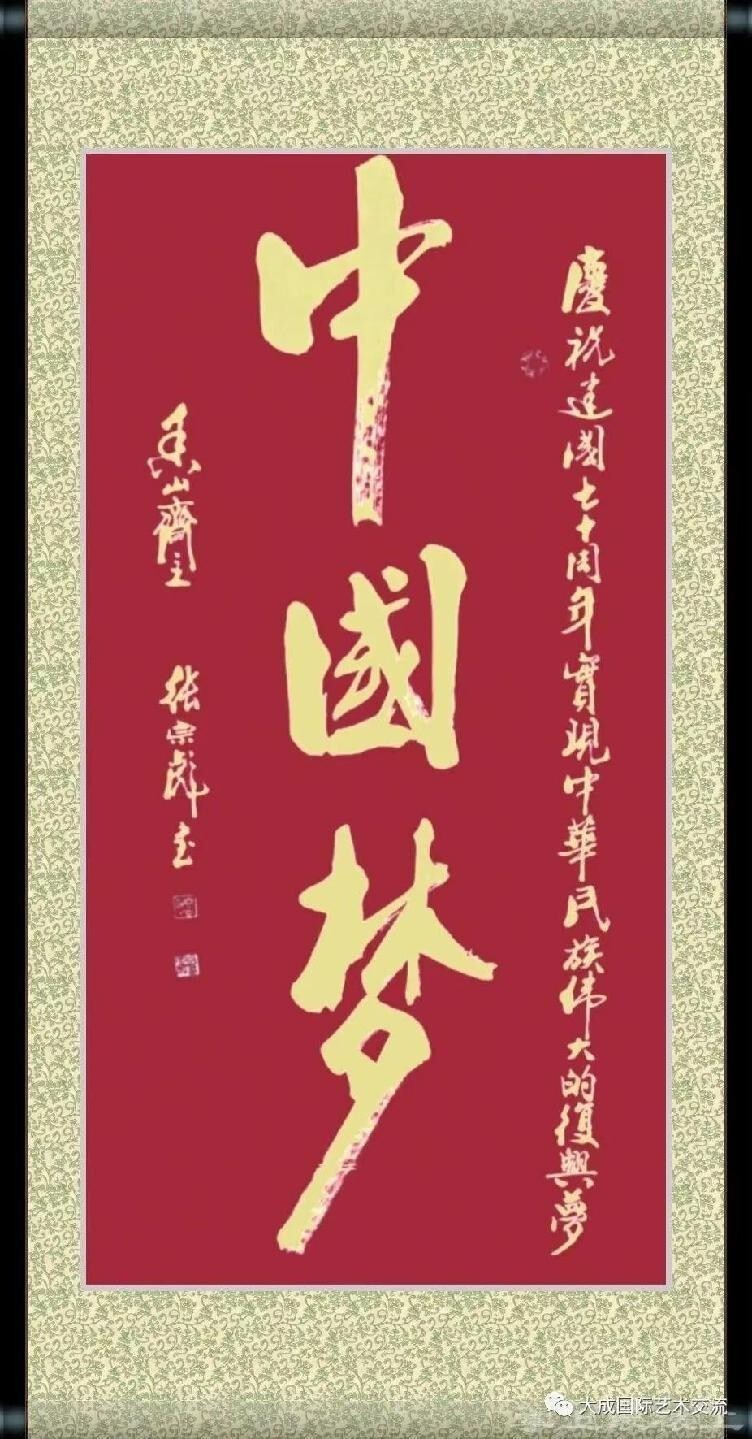 慶祝建國七十周年實現中華民族偉大的復興夢
中國梦
香山齋主 张宗彪书
大成国际艺术交流